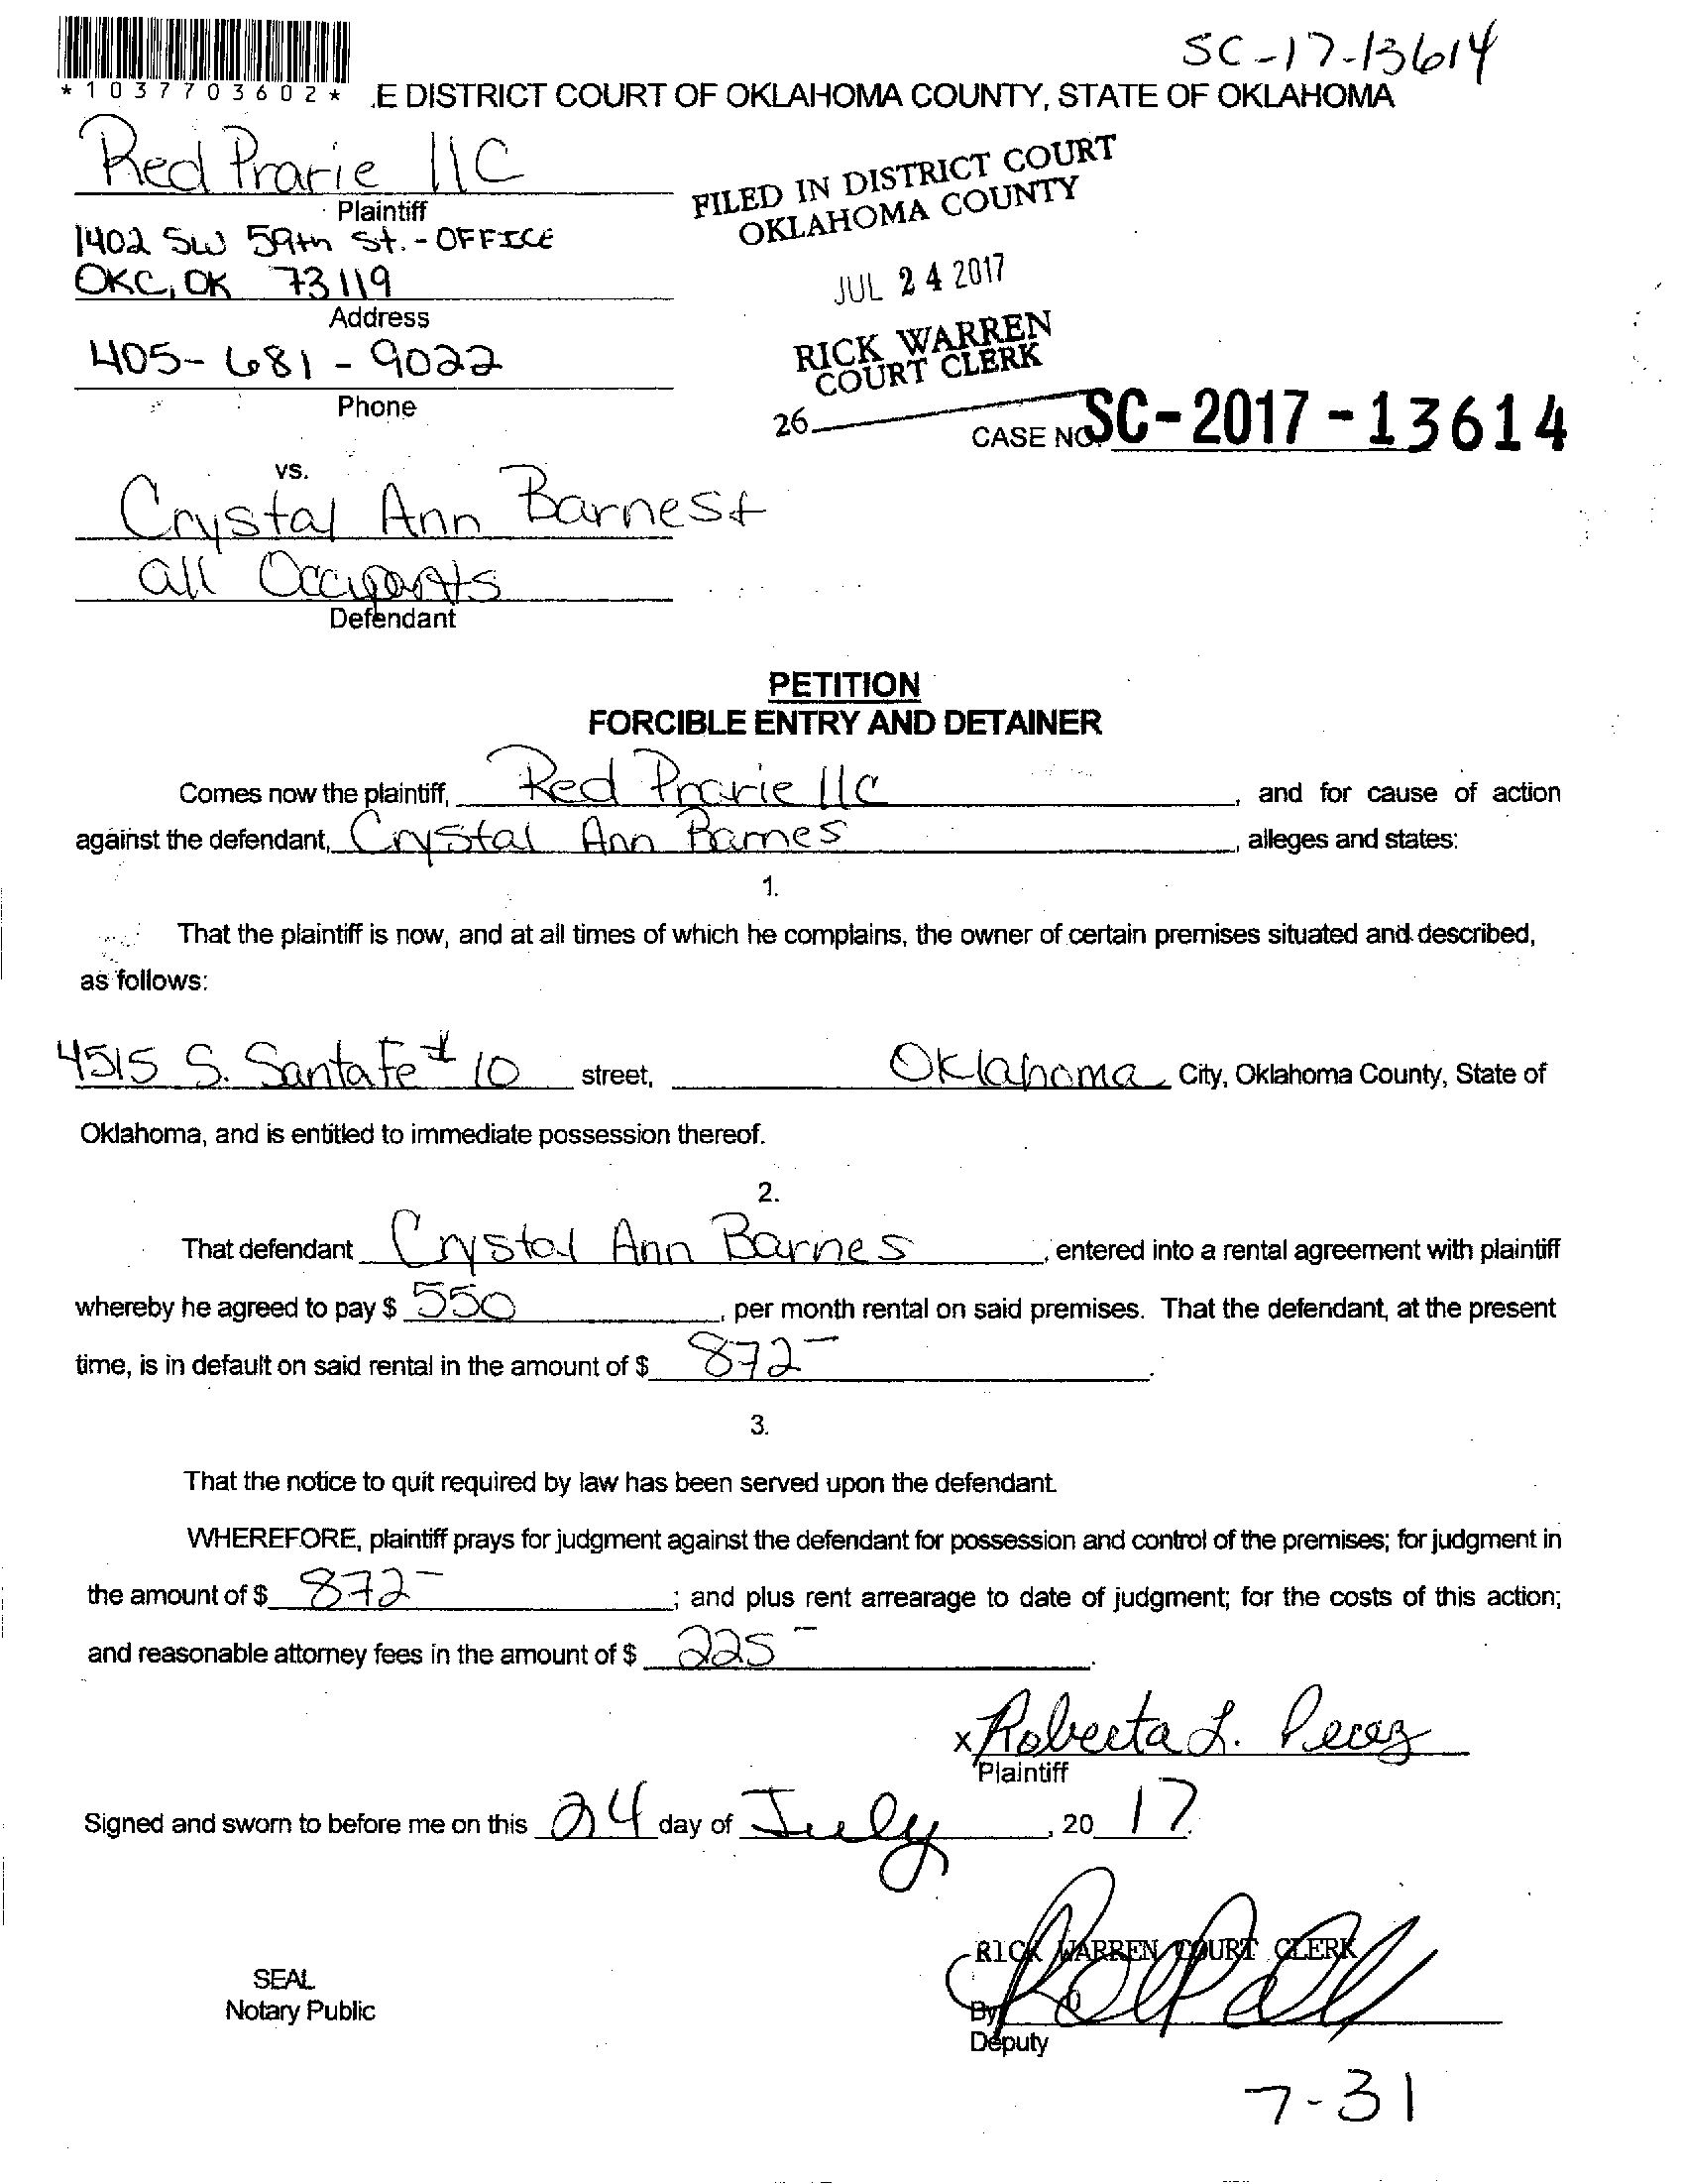 SC-17-13614
*1037703602*
.E DISTRICT COURT OF OKLAHOMA COUNTY, STATE OF OKLAHOMA
Red Prarie llC
Plaintiff
1402 SW 59th St. - OFFICE
OKC, OK 73119
Address
405-681-9022
Phone
FILED IN DISTRICT COURT
OKLAHOMA COUNTY
JUL 24 2017
RICK WARREN
COURT CLERK
26
CASE NO. SC-2017-13614
vs.
Crystal Ann Barnes +
all Occupants
Defendant
PETITION
FORCIBLE ENTRY AND DETAINER
Comes now the plaintiff, Red Prarie llC, and for cause of action
against the defendant, Crystal Ann Barnes, alleges and states:
1.
That the plaintiff is now, and at all times of which he complains, the owner of certain premises situated and described,
as follows:
4515 S. Santa Fe # 10 street, Oklahoma City, Oklahoma County, State of
Oklahoma, and is entitled to immediate possession thereof.
2.
That defendant Crystal Ann Barnes, entered into a rental agreement with plaintiff
whereby he agreed to pay $ 550, per month rental on said premises. That the defendant, at the present
time, is in default on said rental in the amount of $ 872-.
3.
That the notice to quit required by law has been served upon the defendant.
WHEREFORE, plaintiff prays for judgment against the defendant for possession and control of the premises; for judgment in
the amount of $ 872-; and plus rent arrearage to date of judgment; for the costs of this action;
and reasonable attorney fees in the amount of $ 225-.
x Roberta L. Perez
Plaintiff
Signed and sworn to before me on this 24 day of July, 20 17.
RICK WARREN COURT CLERK
SEAL
Notary Public
By
Deputy
7-31